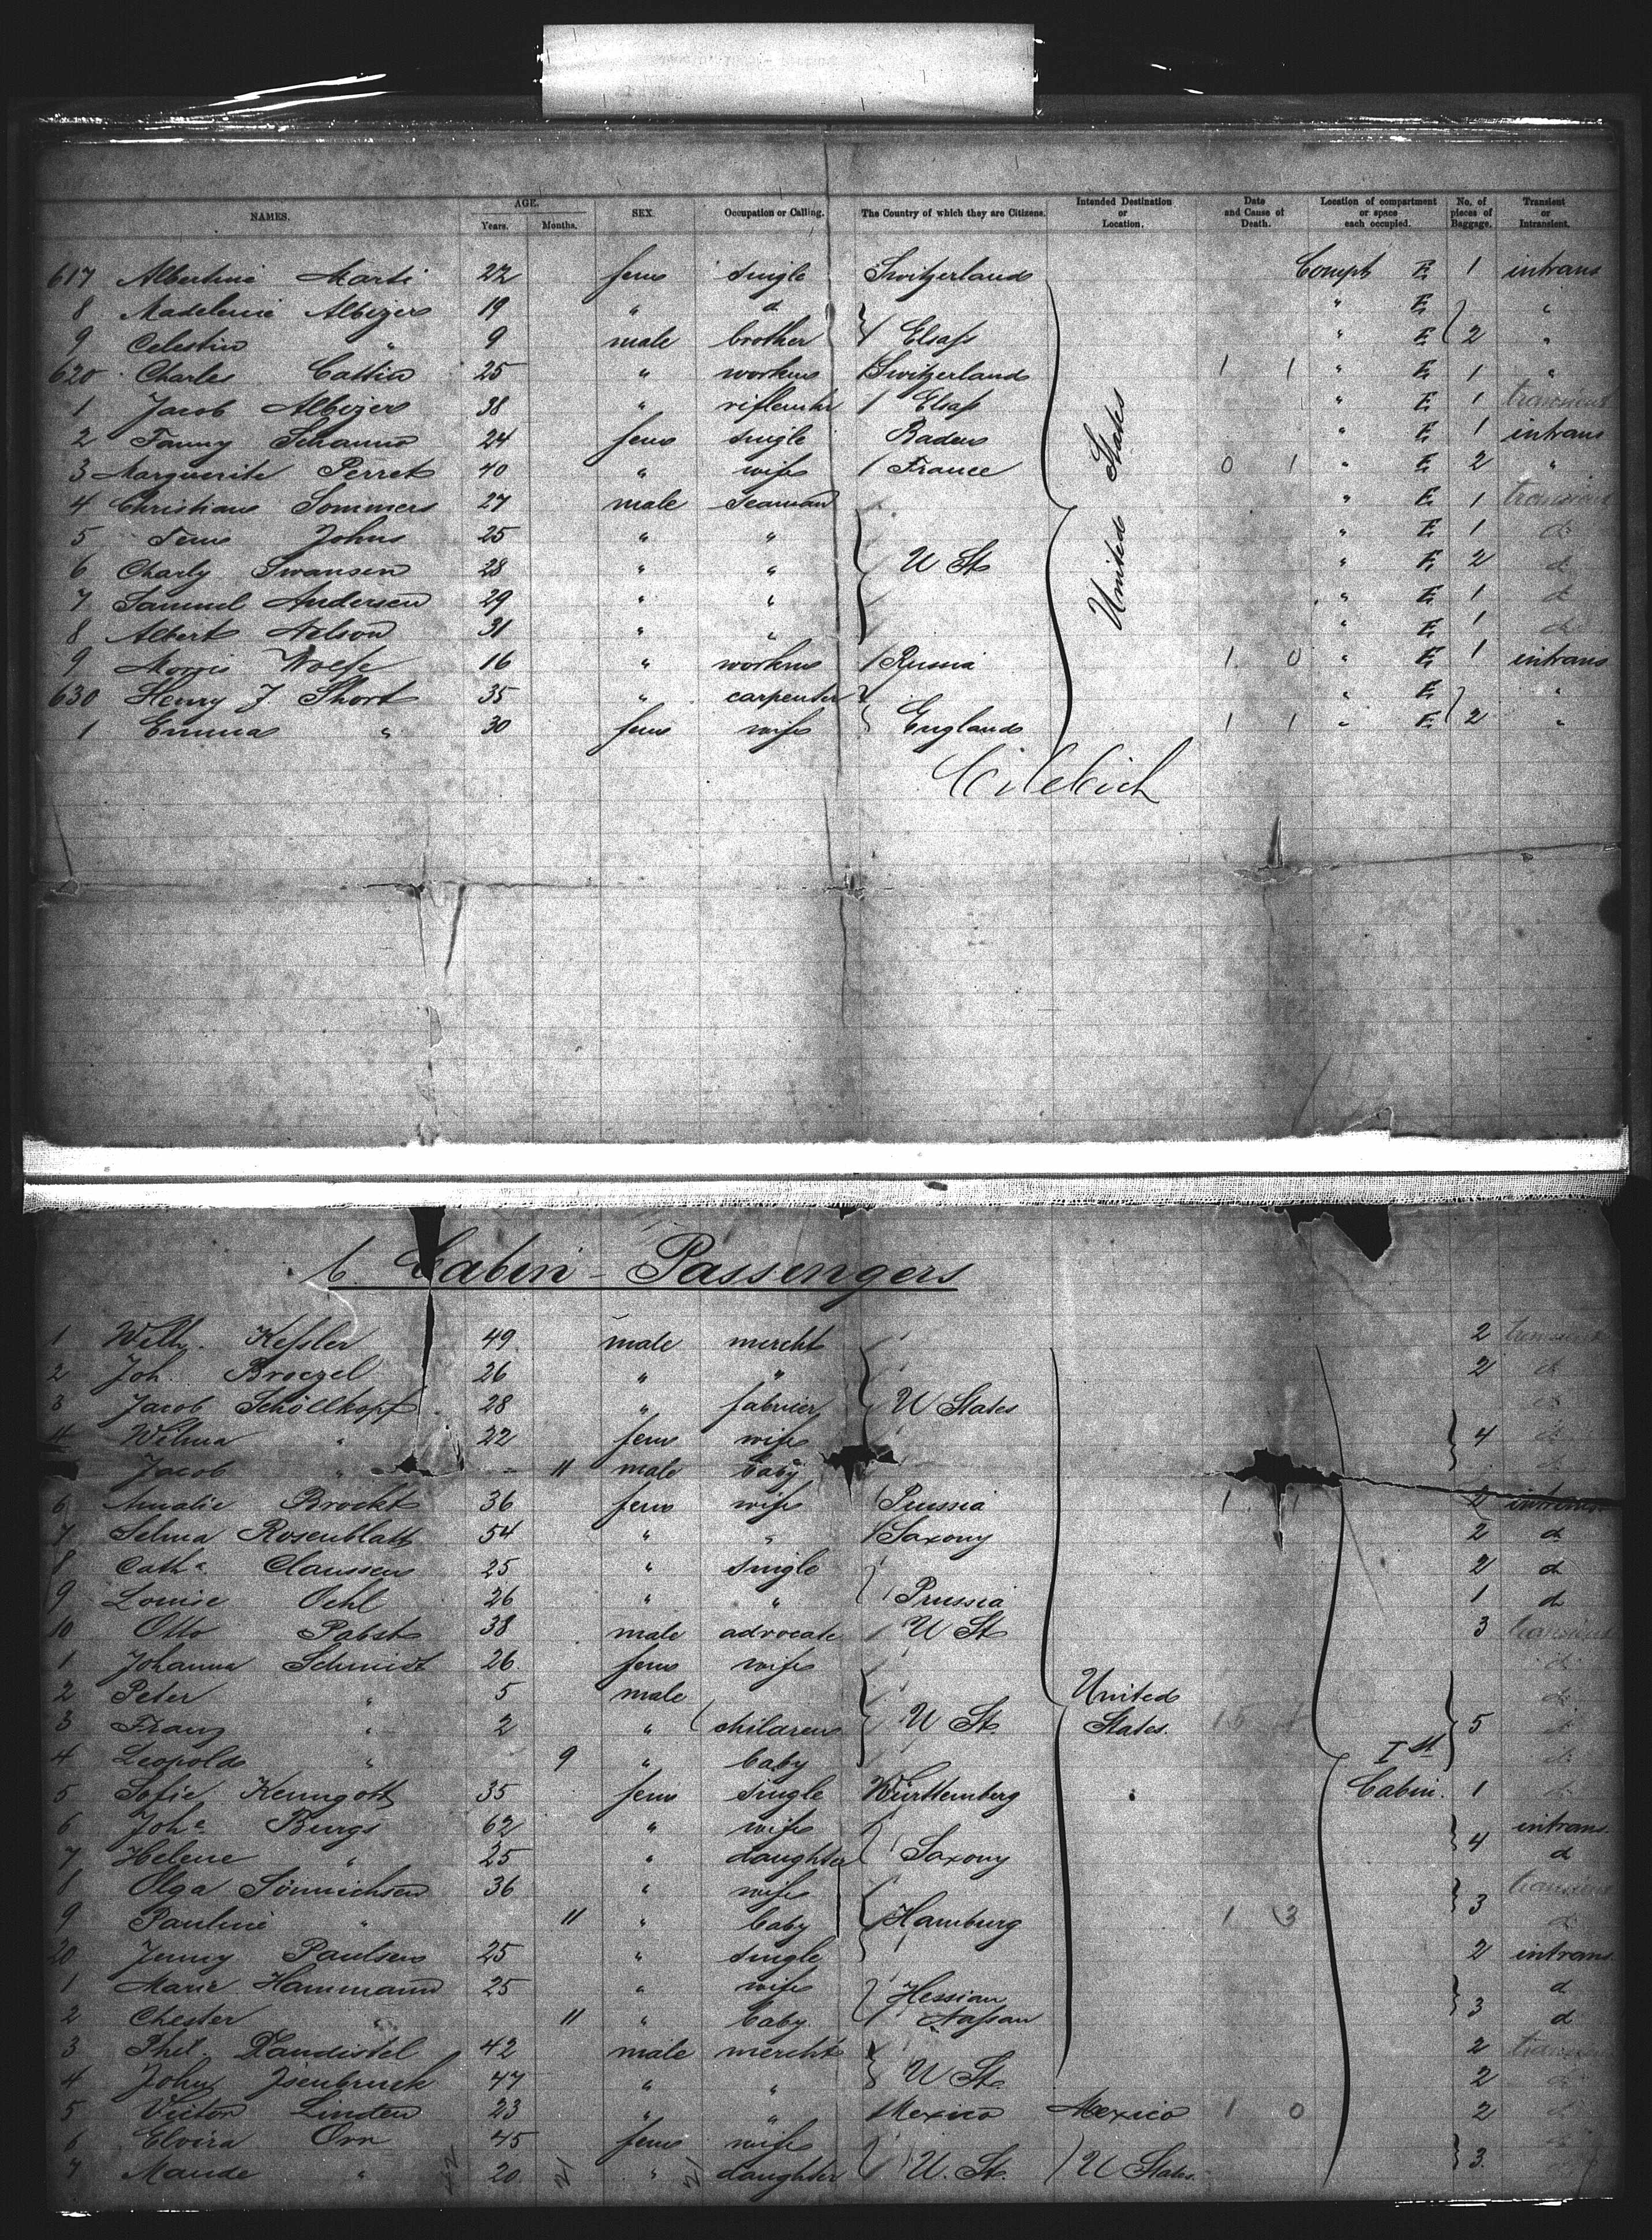 NAMES. AGE. Years. Months. SEX. Occupation or Calling. The Country of which they are Citizens. Intended Destination or Location. Date and Cause of Death. Location of compartment or space each occupied. No. of pieces of Baggage. Transient or Intransient.
617 Albertine Marti 22 fem single Switzerland Compt E 1 intrans
8 Madeleine Albizer 19 " d " E "
9 Celestin " 9 male brother Elsaſs " E 2 "
620 Charles Cattin 25 " workm Switzerland 1 1 " E 1 "
1 Jacob Albizer 38 " Elsaſs " E 1 transient
2 Fanny 24 fem single Baden " E 1 intrans
3 Marguerite Perret 40 " wife France 0 1 " E 2 "
4 Christian Sommers 27 male seaman " E 1 transient
5 Johns 25 " " " E 1 d
6 Charly Swansen 28 " " U St. " E 2 d
7 Samuel Andersen 29 " " " E 1 d
8 Albert Nelson 31 " " " E 1 d
United States
9 Morris Wolfe 16 " workm Russia 1 0 " E 1 intrans
630 Henry J Short 35 " carpenter " E "
1 Emma " 30 fem wife England 1 1 " E 2 "
b. Cabin-Passengers
1 Wilh. Keſsler 49 male mercht 2 transient
2 Joh. Broezel 26 " " 2 d
3 Jacob Schöllkopf 28 " fabricier U States d
4 Wilma " 22 fem wife 4 d
Jacob " 11 male baby d
6 Amalie Brockt 36 fem wife Prussia 1 1 2 intrans
7 Selma Rosenblatt 54 " " Saxony 2 d
8 Cathᵃ Claussen 25 " single 2 d
9 Louise Oehl 26 " " Prussia 1 d
10 Otto Pabst 38 male advocate U St. 3 transient
1 Johanna Schmidt 26 fem wife d
2 Peter " 5 male United d
3 Franz " 2 " children U St. States. 5 d
4 Leopold " 9 " baby Iˢᵗ d
5 Sofie Kenngott 35 fem single Württemberg " Cabin. 1 d
6 Johᵃ Burgs 62 " wife intrans.
7 Helene " 25 " daughter Saxony 4 d
8 Olga Sönnichsen 36 " wife transient
9 Pauline " 11 " baby Hamburg 1 3 3 d
20 Jenny Paulsen 25 " single 2 intrans.
1 Marie Hammann 25 " wife Hessian d
2 Chester " 11 " baby Naſsau 3 d
3 Phil. Dandistel 42 male mercht 2 transient
4 John Isenbruck 47 " " U St. 2 d
5 Victor Linden 23 " " Mexico Mexico 1 0 2 d
6 Elvira Orr 45 fem wife d
7 Maude " 20 " daughter U. St. U States. 3.